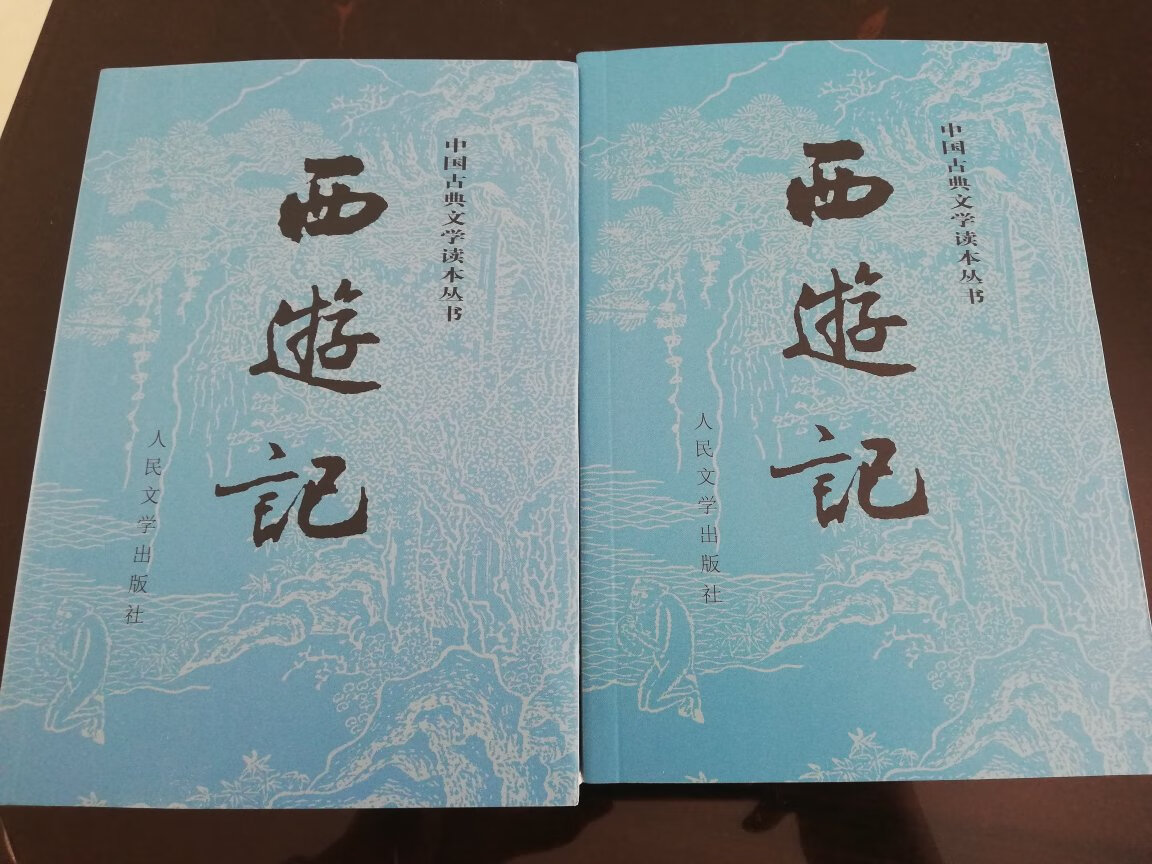 中国古典文学读本丛书
西遊記
人民文学出版社
中国古典文学读本丛书
西遊記
人民文学出版社